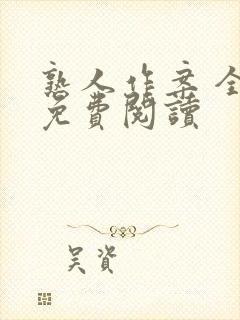 熟人作案全
免費閱讀
吴資